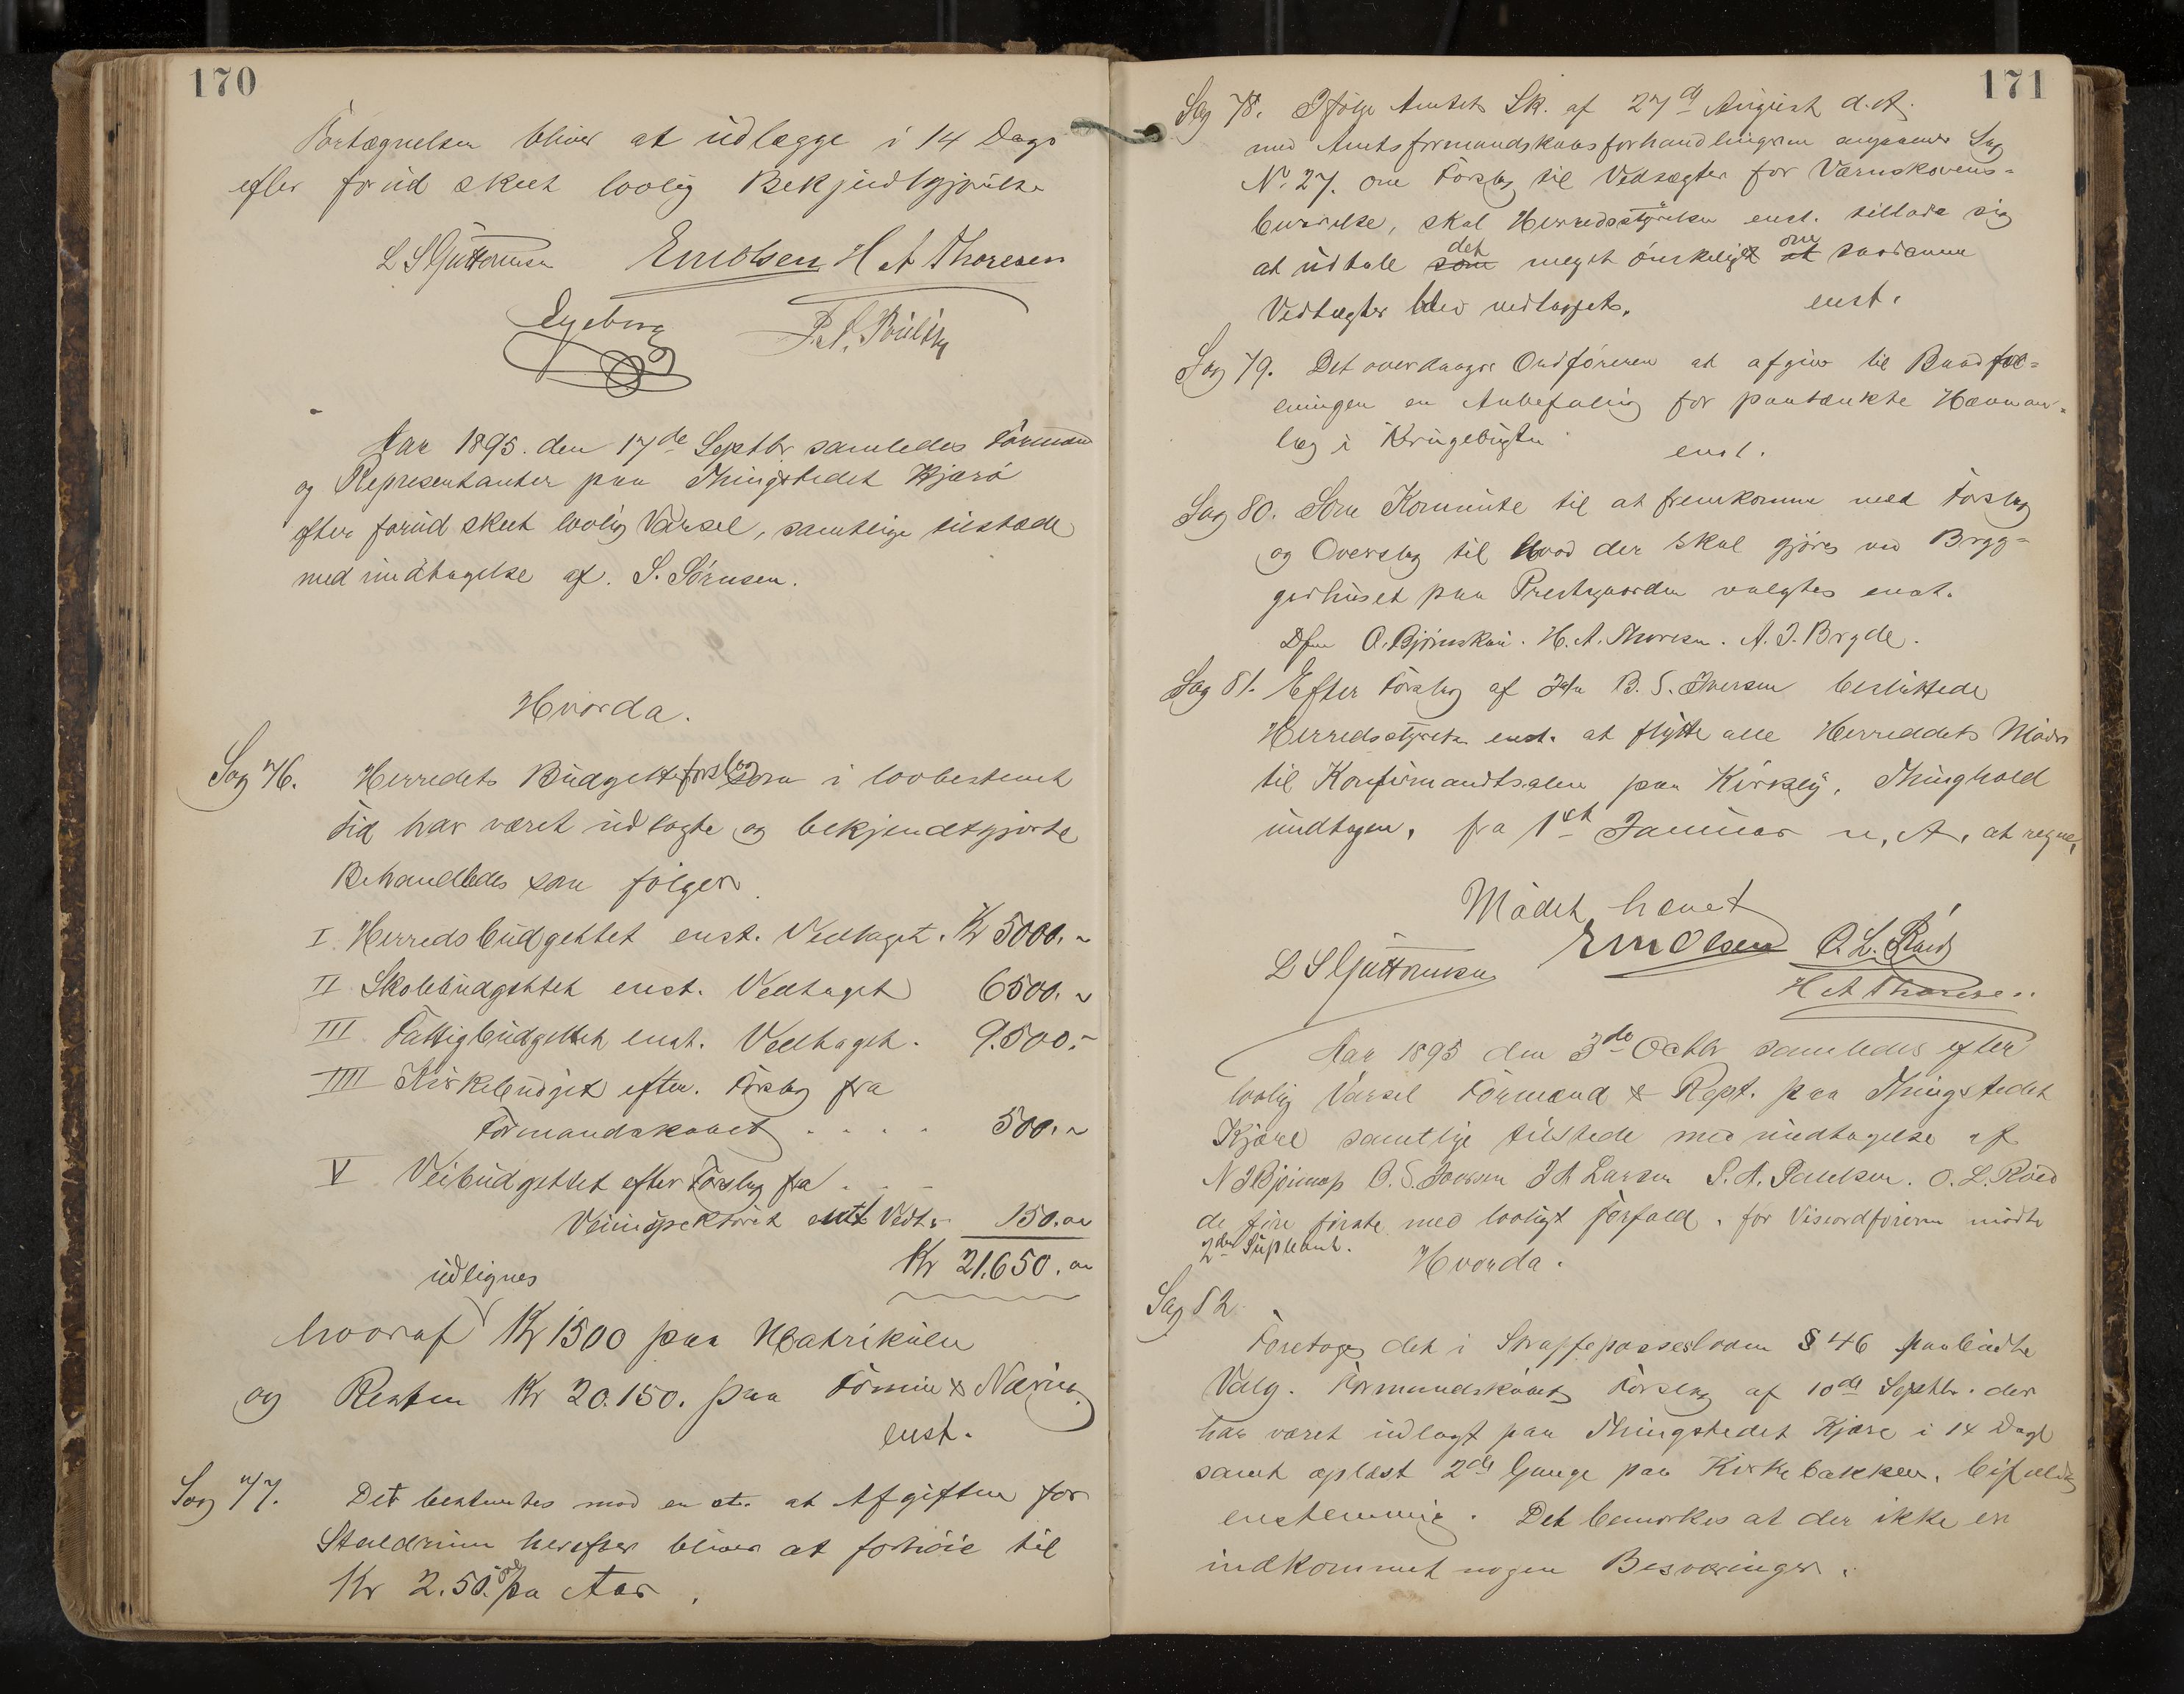 170
Fortegnelsen bliver at udlægge i 14 Dage
efter forud skeet lovlig Bekjendtgjørelse
L S Guttormsen Em Olsen H A Thoresen
Lyeborg
Aar 1895. den 17de Septbr samledes Formænd
og Representanter paa Thingstedet Kjærø
efter forud skeet lovlig Varsel, samtlige tilstæde
med undtagelse af. S. Sørnsen.
Hvorda.
Sag 76. Herredets Budgetforslag som i lovbestemt
tid har været udlagte og bekjendtgjorte
Behandledes som følger
I Herredsbudgettet enst. Vedtaget. Kr 5000. -
II Skolebudgettet enst. Vedtaget 6500. -
III Fattigbudgettet enst. Vedtaget. 9.500. -
IIII Kirkebudget efter. Forslag fra
Formandskabet . . . . 500. -
V Veibudgettet efter Forslag fra . . -
Veiinspektøret enst Vedt. - 150. oo
Kr 21.650. oo
udlignes
hvoraf Kr 1500 paa Matrikulen
og Resten Kr 20.150. paa Formue & Næring
enst.
Sag 77. Det bestemtes mod en st. at Afgiften for
Staldrum herefter bliver at forhøie til
Kr 2.50. pa Aar.
171
Sag 78. Ifølge Amtets Sk. af 27de August d. A.
med Amtsformandskabsforhandlingerne angaaende Sag
No. 27. om Forslag til Vedtægter for Værnskovens-
bevarelse, skal Herredsstyrelsen enst. tillade sig
at udtale som det meget ønskeligt at om saadanne
Vedtægter blev vedtagget. enst.
Sag 79. Det overdrages Ordføreren at afgive til
en Anbefaling for paatænkte Havnean-
læg i Kringebugten enst.
Sag 80. Som Kommite til at fremkomme med Forslag
og Overslag til hvad der skal gjøres ved Brygg-
gerhuset paa Prestegaarden valgtes enst.
D'Hrr O. Bjørnskau. H. A. Thoresen. A. J. Bryde.
Sag 81. Efter Forslag af B. S. Iversen besluttede
Herredsstyret enst. at flytte alle Herreddets Møder
til Konfirmandtsalen paa Kirkely, Thinghold
undtagen, fra 1st Januar n. A. at regne.
Mødet hævet
L S Guttormsen Em Olsen O. L. Røed
H A Thoresen
Aar 1895 den 3de Octbr samledes efter
lovlig Varsel Formænd & Rept. paa Thingstedet
Kjære samtlige tilstede med undtagelse af
N J Bjørnnæs O. S. Iversen J A Larsen S. A. Paulsen. O. L. Røed
de fire første med lovligt forfald. for Viseordføreren mødte
2den Supleant. Hvorda.
Sag 82
Foretoges det i Straffeprosesloven § 46 paabudte
Valg. Formandskabets Forslag af 10de Septbr. der
har været udlagt paa Thingstedet Kjære i 14 Dage
samt oplæst 2de Gange paa Kirkebakken, bifaldtes
enstemmig. Det bemerkes at der ikke er
indkommet nogen Besværinger.